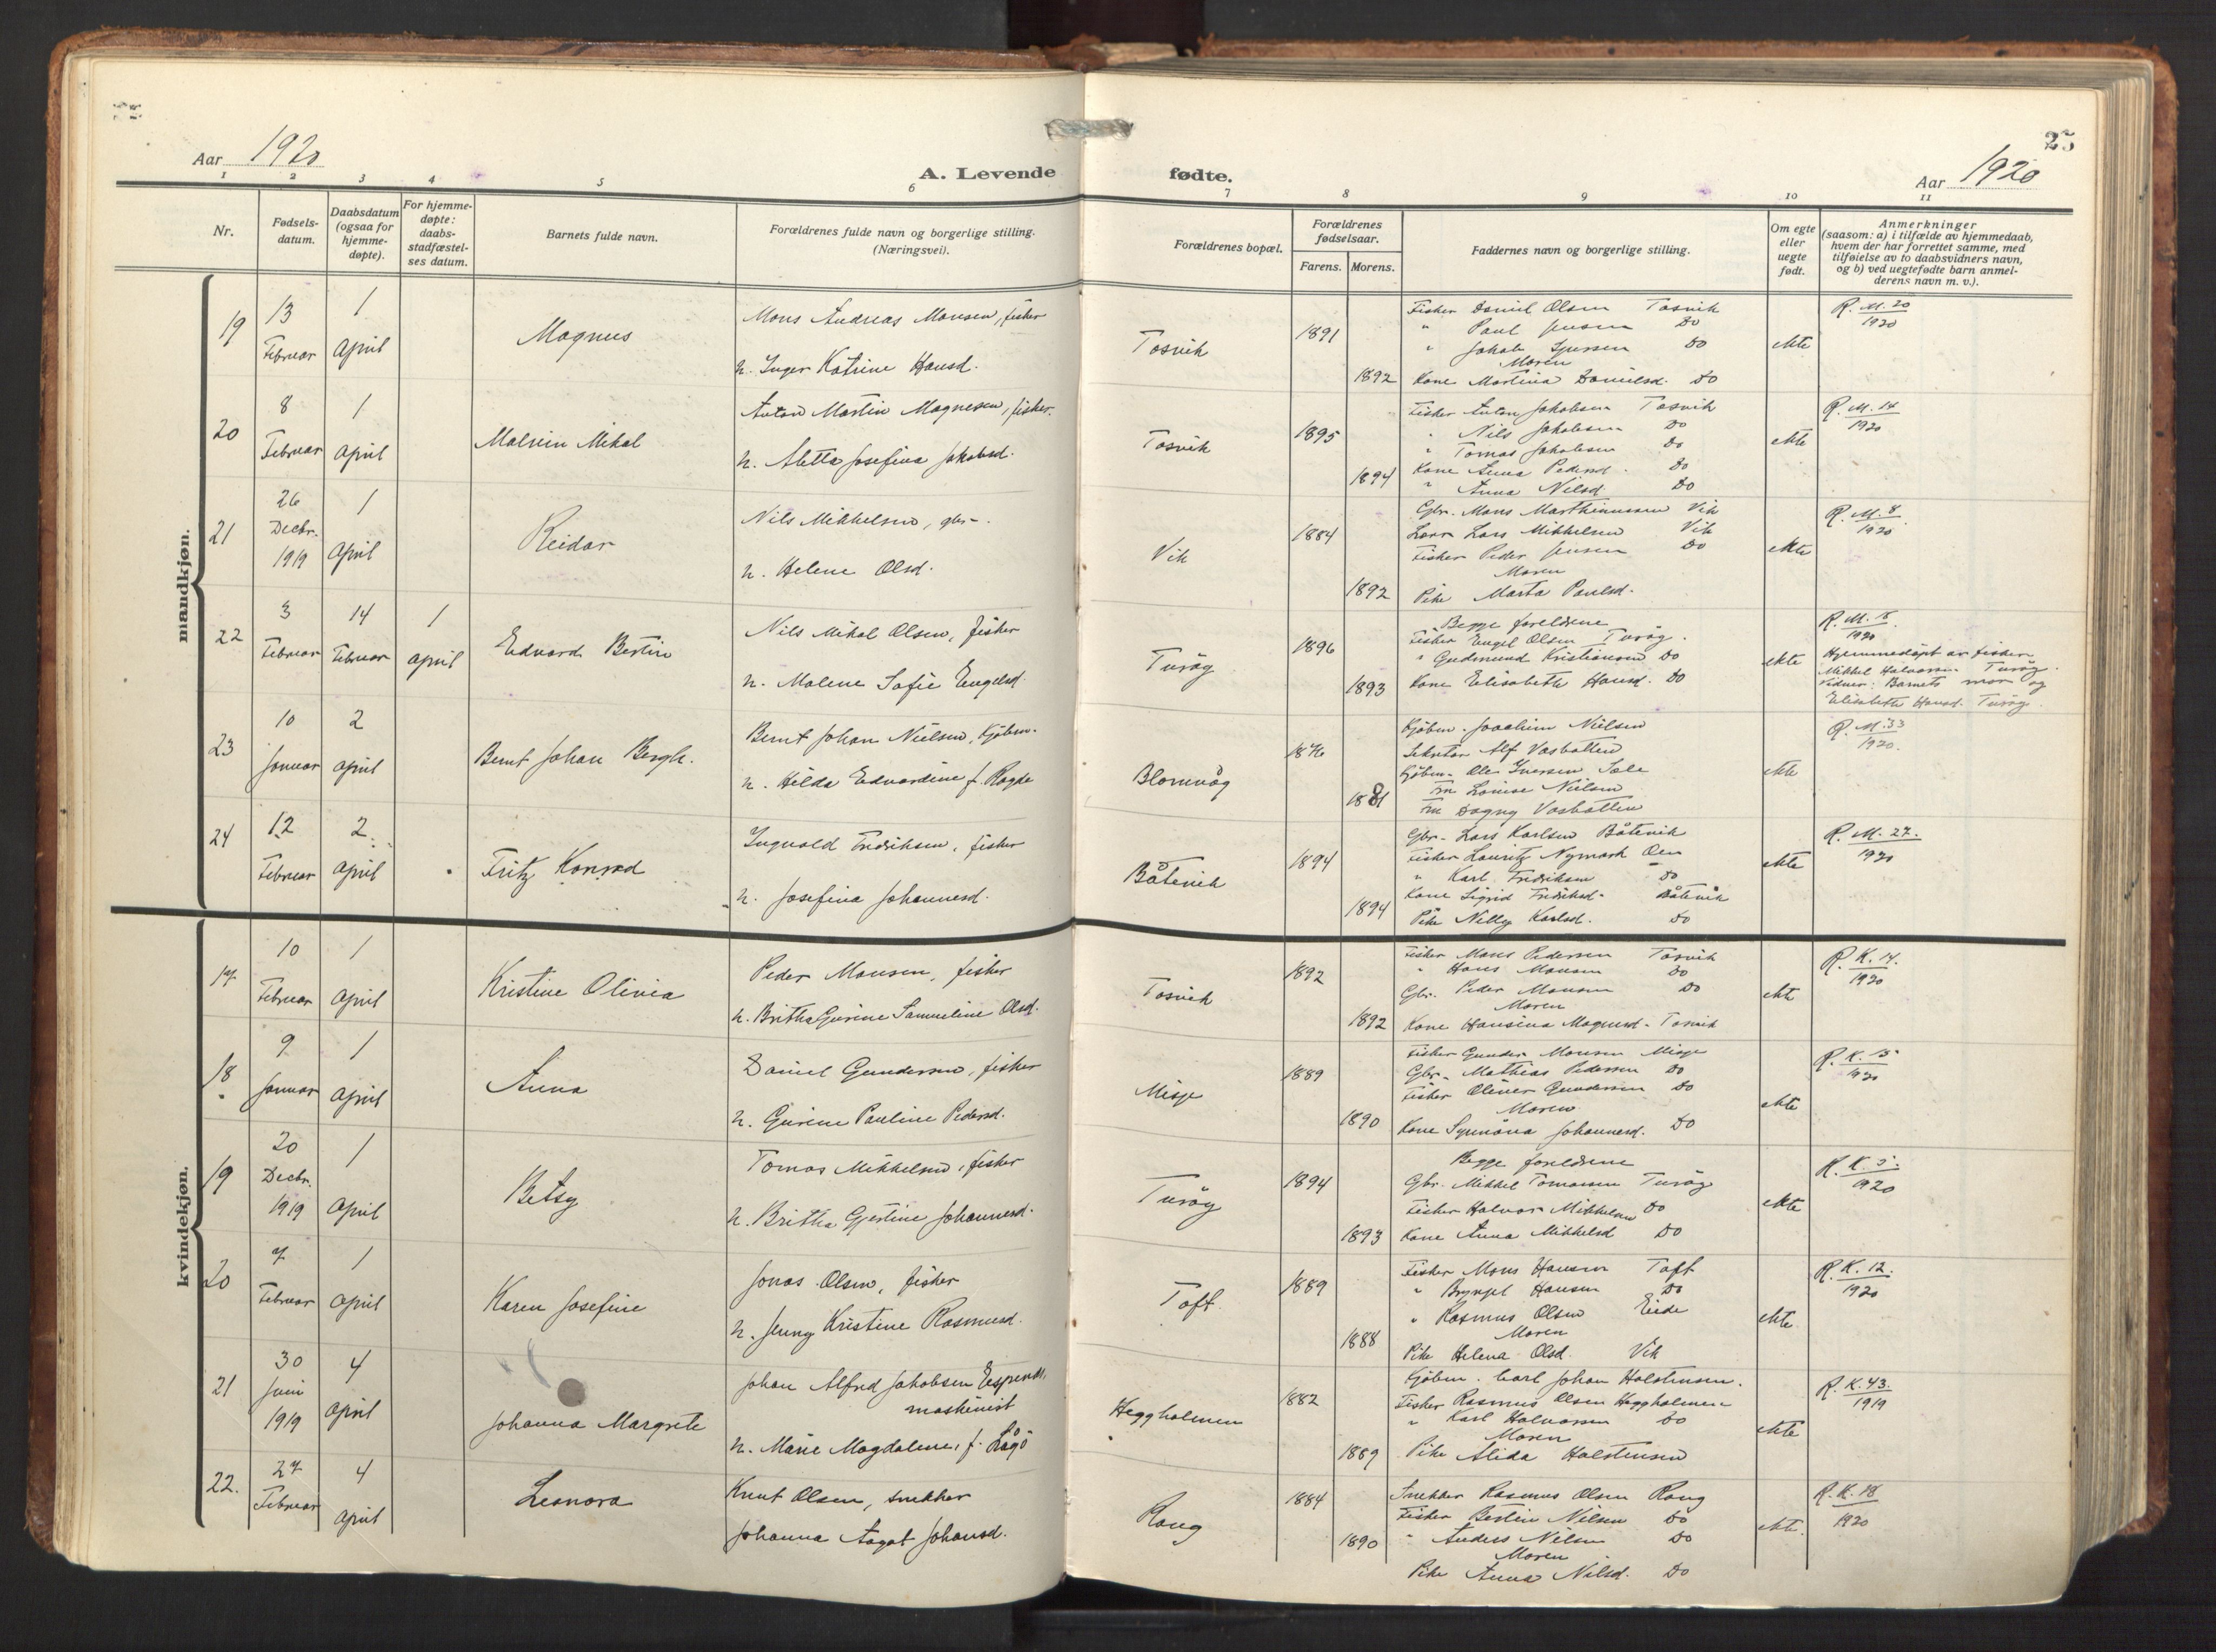 25
Aar 1920
A. Levende fødte.
Aar 1920
1 2 3 4 5 6 7 8 9 10 11
Nr.
Fødsels-
datum.
Daabsdatum
(ogsaa for
hjemme-
døpte).
For hjemme-
døpte:
daabs-
stadfæstel-
ses datum.
Barnets fulde navn.
Forældrenes fulde navn og borgerlige stilling.
(Næringsvei).
Forældrenes bopæl.
Forældrenes
fødselsaar.
Farens. Morens.
Faddernes navn og borgerlige stilling.
Om egte
eller
uegte
født.
Anmerkninger
(saasom: a) i tilfælde av hjemmedaab,
hvem der har forrettet samme, med
tilføielse av to daabsvidners navn,
og b) ved uegtefødte barn anmel-
derens navn m. v.).
mandkjøn.
19
13
Februar
1
April
Magnus
Mons Andreas Monsen, fisker
h. Inger Katrine Hansd.
Tosvik
1891
1892
Fisker Daniel Olsen Tosvik
" Paul Jensen Do
" Jakob Do
Moren
Kone Martina Danielsd. Do
ekte
R. M. 20
1920
20
8
Februar
1
April
Malvin Mikal
Anton Martin Magnesen, fisker.
h. Aletta Josefina Jakobsd.
Tosvik
1895
1894
Fisker Anton Jakobsen Tosvik
" Nils Jakobsen Do
" Tomas Jakobsen Do
Kone Anna Pedersd. Do
" Anna Nilsd. Do
ekte
R. M. 14
1920
21
26
Decbr.
1919
1
April
Reidar
Nils Mikkelsen, gbr.
h. Helene Olsd.
Vik
1884
1892
Gbr. Mons Marthinussen Vik
Lars Mikkelsen Vik
Fisker Peder Jensen Do
Moren
Pike Marta Paulsd.
ekte
R. M. 8
1920
22
3
Februar
14
Februar
1
April
Edvard Bertin
Nils Mikal Olsen, fisker
h. Malene Sofie Engelsd.
Turøy
1896
1893
Begge foreldrene
Fisker Engel Olsen Turøy.
" Gudmund Kristiansen Do
Kone Elisabeth Hansd. Do
ekte
R. M. 15
1920
Hjemmedøpt av fisker
Mikkel Halvorsen Turøy.
Vidner: Barnets mor og
Elisabeth Hansd. Turøy.
23
10
Januar
2
April
Bernt Johan Bergh.
Bernt Johan Nielsen, Kjøbm.
h. Hilda Edvardine f. Ragde
Blomvåg
1876
1881
Kjøbm. Joachim Nielsen
Sekretær Alf Vasbotten
Kjøbm. Ole Iversen Sæle
Fru Louise Nielsen
Fru Dagny Vasbotten
ekte
R. M. 33
1920.
24
12
Februar
2
April
Fritz Konrad
Ingvald Fredriksen, fisker
h. Josefina Johannesd.
Båtevik
1894
1894
Gbr. Lars Karlsen Båtevik
Fisker Lauritz Nymark Oen
" Karl Fredriksen Do
Kone Sigrid Fredriksd. Båtevik
Pike Nelly Karlsd. Do
ekte
R. M. 27.
1920
kvindekjøn.
17
10
Februar
1
April
Kristine Olivia
Peder Monsen, fisker
h. Britha Gurine Samueline Olsd.
Tosvik
1892
1892
Fisker Mons Pedersen Tosvik
" Hans Monsen Do
Gbr. Peder Monsen Do
Moren
Kone Hansina Magnusd. Tosvik
ekte
R. K. 14.
1920
18
9
Januar
1
April
Anna
Daniel Gundersen, fisker
h. Gurine Pauline Pedersd.
Misje
1889
1890
Fisker Gunder Monsen Misje
Gbr. Mathias Pedersen Do
Fisker Oliver Gundersen Do
Moren
Kone Synnøva Johannesd. Do
ekte
R. K. 15
1920
19
20
Decbr.
1919
1
April
Betsy
Tomas Mikkelsen, fisker
h. Britha Gjertine Johannesd.
Turøy
1894
1893
Begge foreldrene
Gbr. Mikkel Tomassen Turøy
Fisker Halvor Mikkelsen Do
Kone Anna Mikkelsd Do
ekte
R. K. 5.
1920
20
7
Februar
1
April
Karen Josefine
Jonas Olsen, fisker
h. Jenny Kristine Rasmusd.
Toft.
1889
1888
Fisker Mons Hansen Toft
" Brynjel Hansen Do
" Rasmus Olsen Eide
Moren
Pike Helena Olsd. Vik
ekte.
R. K. 12.
1920
21
30
Juni
1919
4
April
Johanna Margrete
Johan Alfred Jakobsen Espenes,
maskinist
h. Marie Magdalene, f. Lågø
Heggholmen
1882
1889
Kjøbm. Carl Johan Halstensen.
Fisker Rasmus Olsen Heggholmen
" Karl Halvorsen Do
Moren
Pike Alida Halstensen
ekte
R. K. 43.
1919
22.
27
Februar
4
April
Leonora
Knut Olsen, snekker
Johanna Aagot Johansd.
Rong
1884
1890
Snekker Rasmus Olsen Rong
Fisker Bertin Nilsen Do
" Anders Nilsen Do
Moren
Pike Anna Nilsd. Do
ekte.
R. K. 18
1920